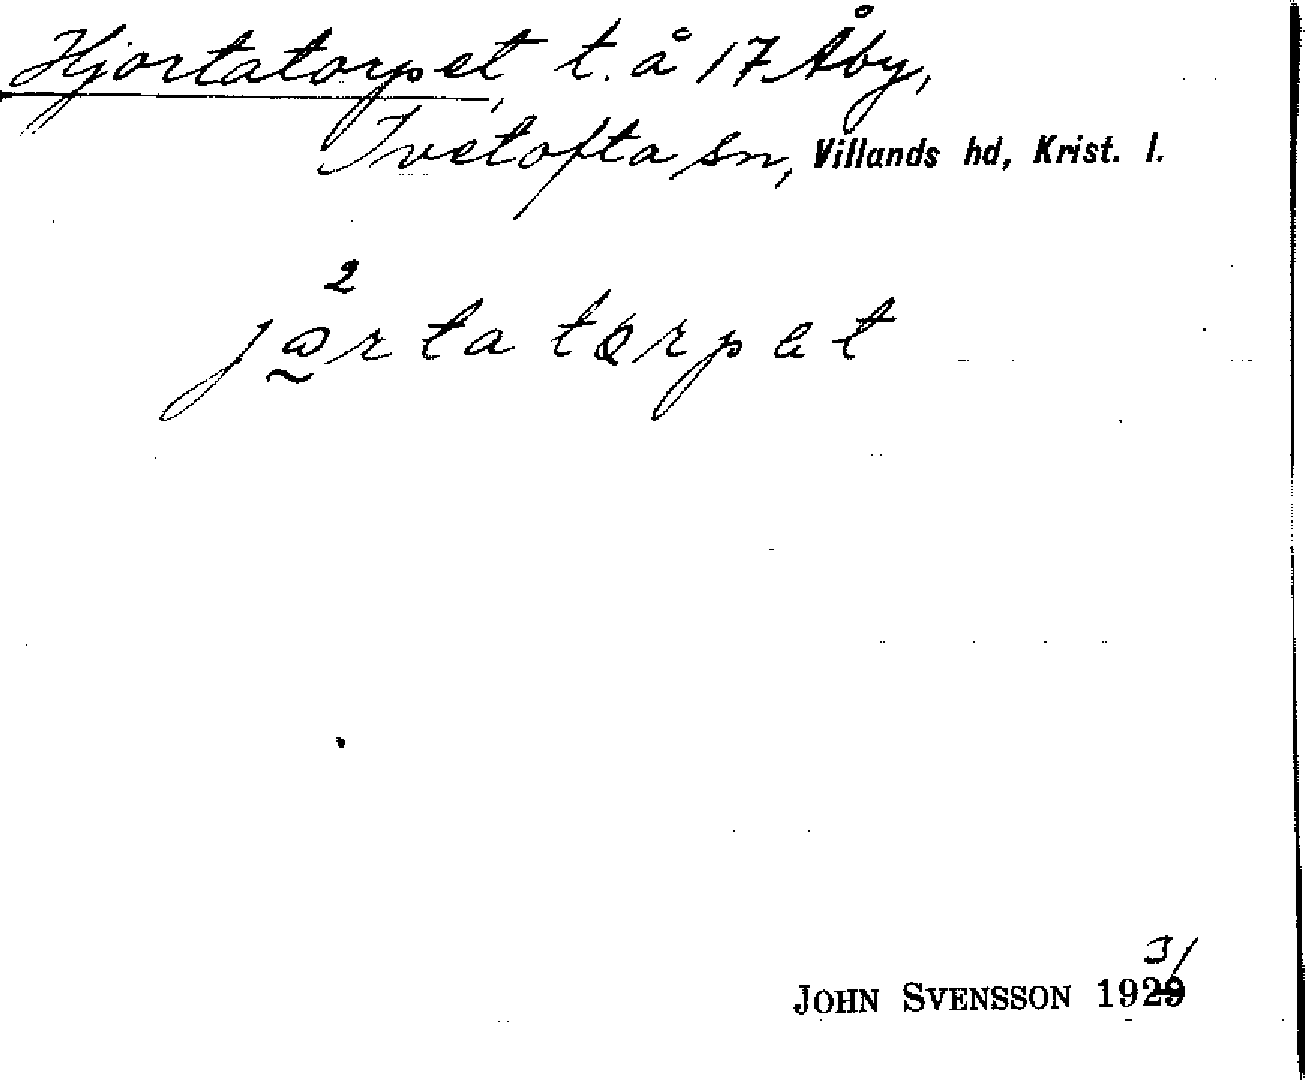 Hjortatorpet t. å 17 Åby,
Ivetofta sn, Villands hd, Krist. l.
2
jortatorpet
31
JOHN SVENSSON 1929